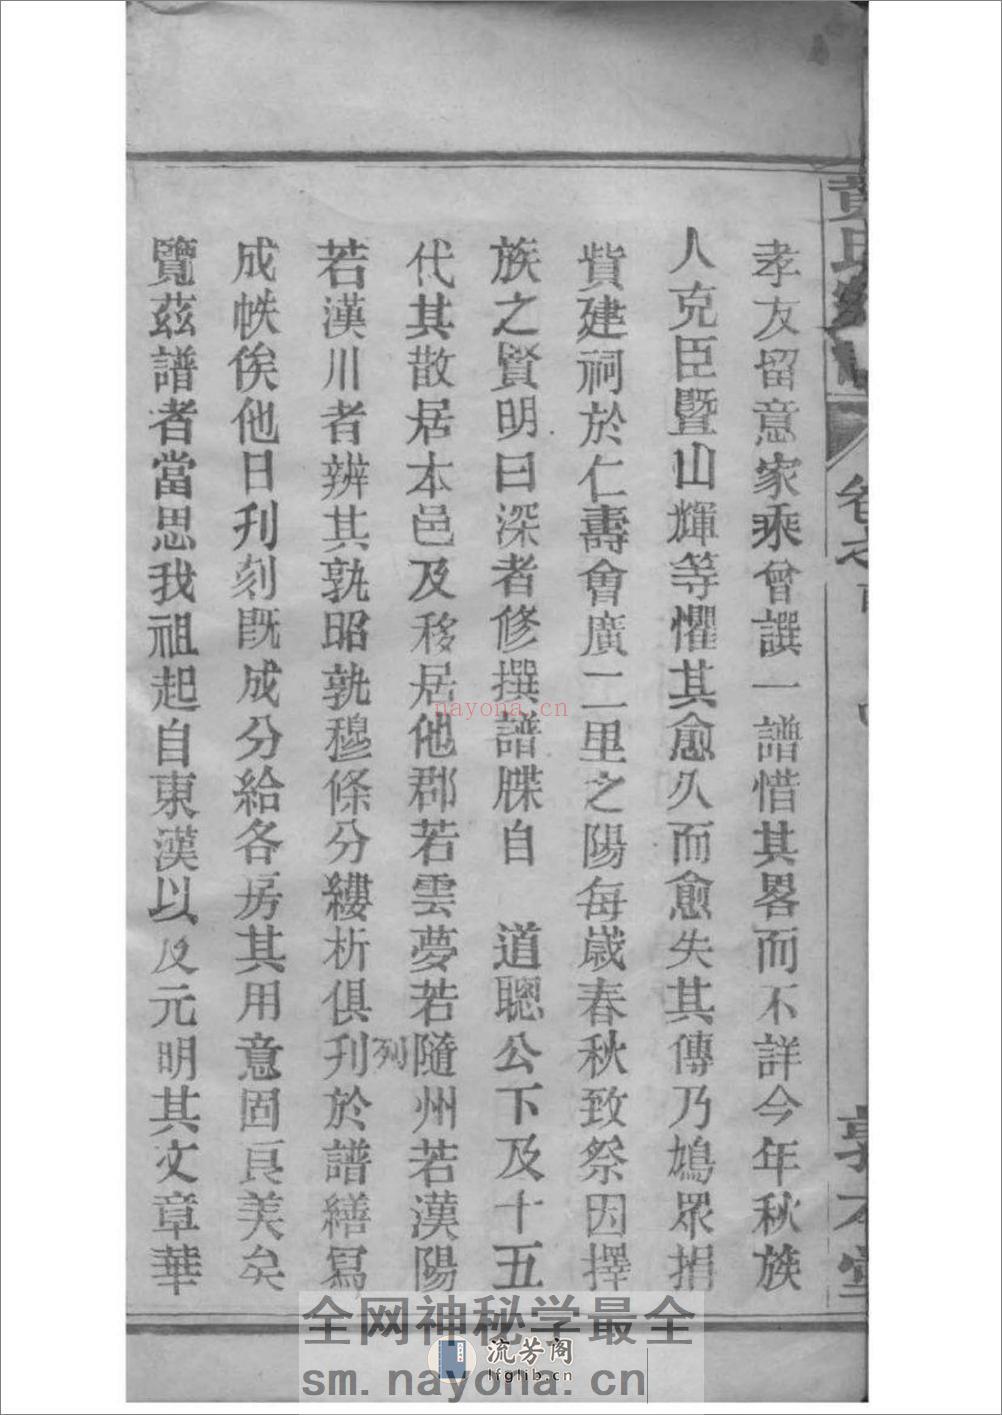 孝友留意家乘曾譔一譜惜其畧而不詳今年秋族
人克臣暨山輝等懼其愈久而愈失其傳乃鳩眾捐
貲建祠於仁壽會廣二里之陽每歲春秋致祭因擇
族之賢明曰深者修撰譜牒自 道聰公下及十五
代其散居本邑及移居他郡若雲夢若隨州若漢陽
列
若漢川者辨其孰昭孰穆條分縷析俱刋於譜繕寫
成帙俟他日刋刻既成分給各房其用意固良美矣
覽茲譜者當思我祖起自東漢以及元明其文章華
黃氏
卷之
堂
nayona.cn
全网神秘学最全
流芳阁
lfglib.cn
sm.nayona.cn